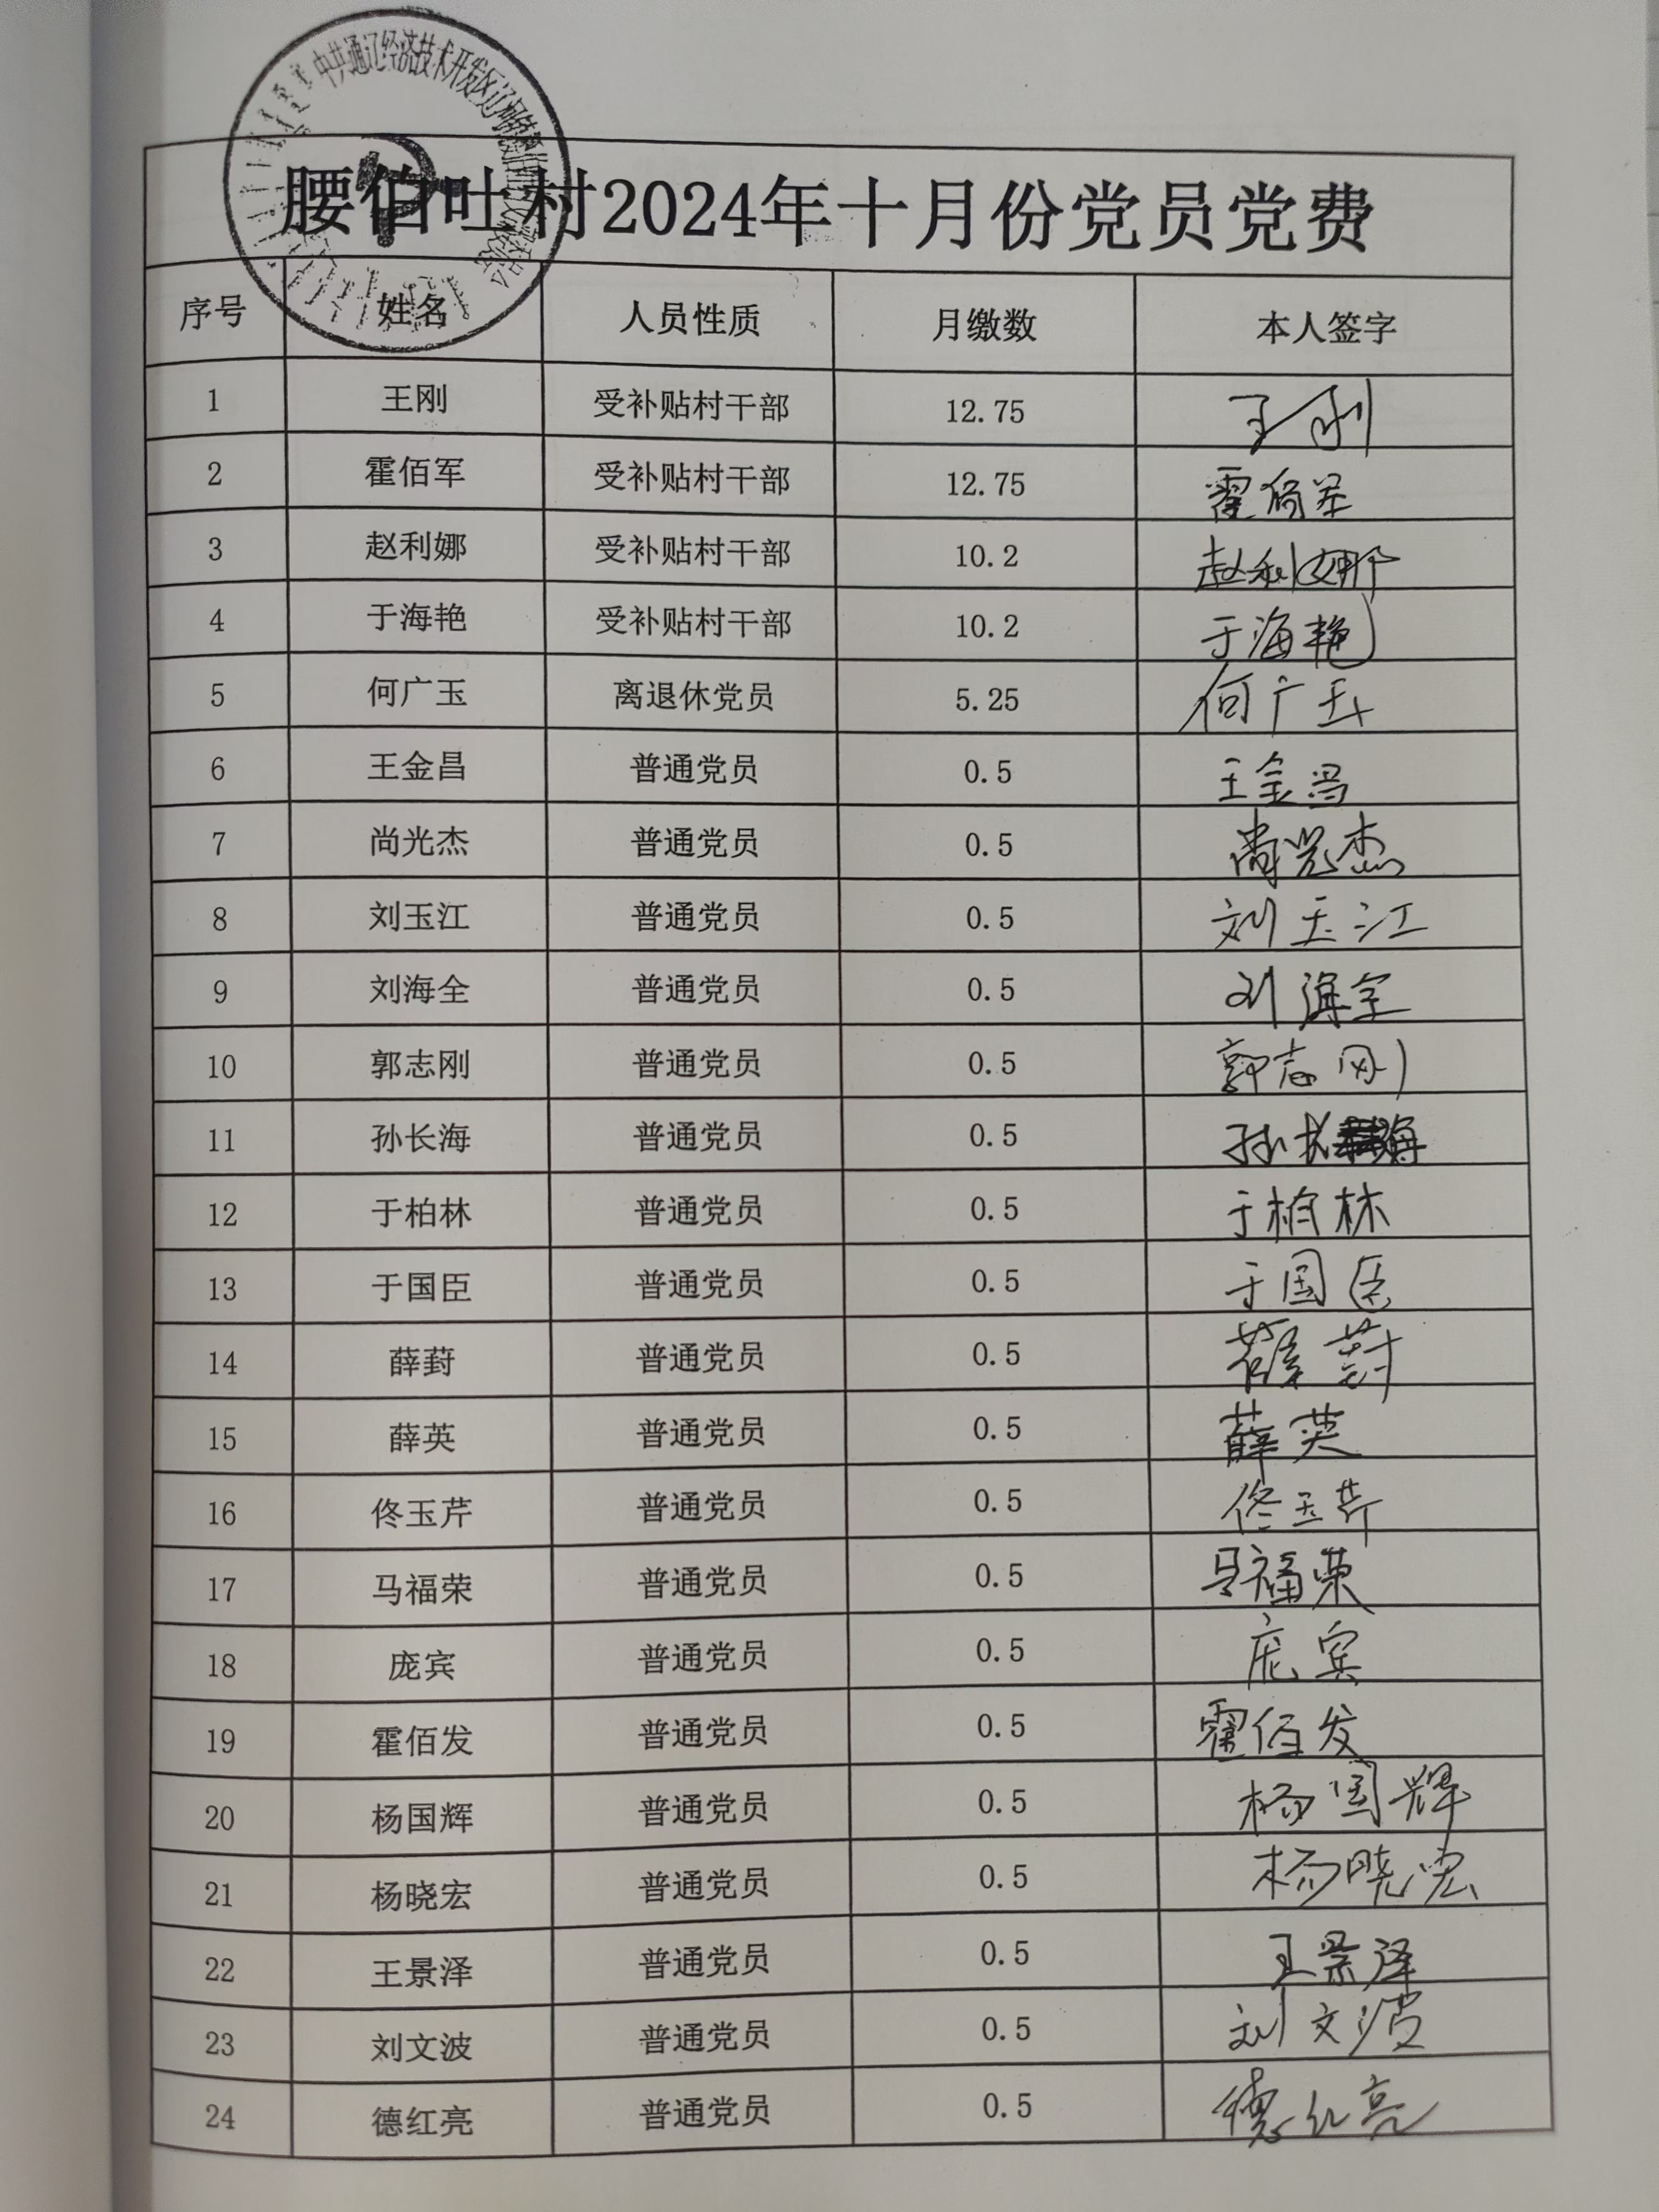 中共通辽经济技术开发区辽河镇腰伯吐村
腰伯吐村2024年十月份党员党费
序号 姓名 人员性质 月缴数 本人签字
1 王刚 受补贴村干部 12.75 王刚
2 霍佰军 受补贴村干部 12.75 霍佰军
3 赵利娜 受补贴村干部 10.2 赵利娜
4 于海艳 受补贴村干部 10.2 于海艳
5 何广玉 离退休党员 5.25 何广玉
6 王金昌 普通党员 0.5 王金昌
7 尚光杰 普通党员 0.5 尚光杰
8 刘玉江 普通党员 0.5 刘玉江
9 刘海全 普通党员 0.5 刘海全
10 郭志刚 普通党员 0.5 郭志刚
11 孙长海 普通党员 0.5 孙长海
12 于柏林 普通党员 0.5 于柏林
13 于国臣 普通党员 0.5 于国臣
14 薛葑 普通党员 0.5 薛葑
15 薛英 普通党员 0.5 薛英
16 佟玉芹 普通党员 0.5 佟玉芹
17 马福荣 普通党员 0.5 马福荣
18 庞宾 普通党员 0.5 庞宾
19 霍佰发 普通党员 0.5 霍佰发
20 杨国辉 普通党员 0.5 杨国辉
21 杨晓宏 普通党员 0.5 杨晓宏
22 王景泽 普通党员 0.5 王景泽
23 刘文波 普通党员 0.5 刘文波
24 德红亮 普通党员 0.5 德红亮